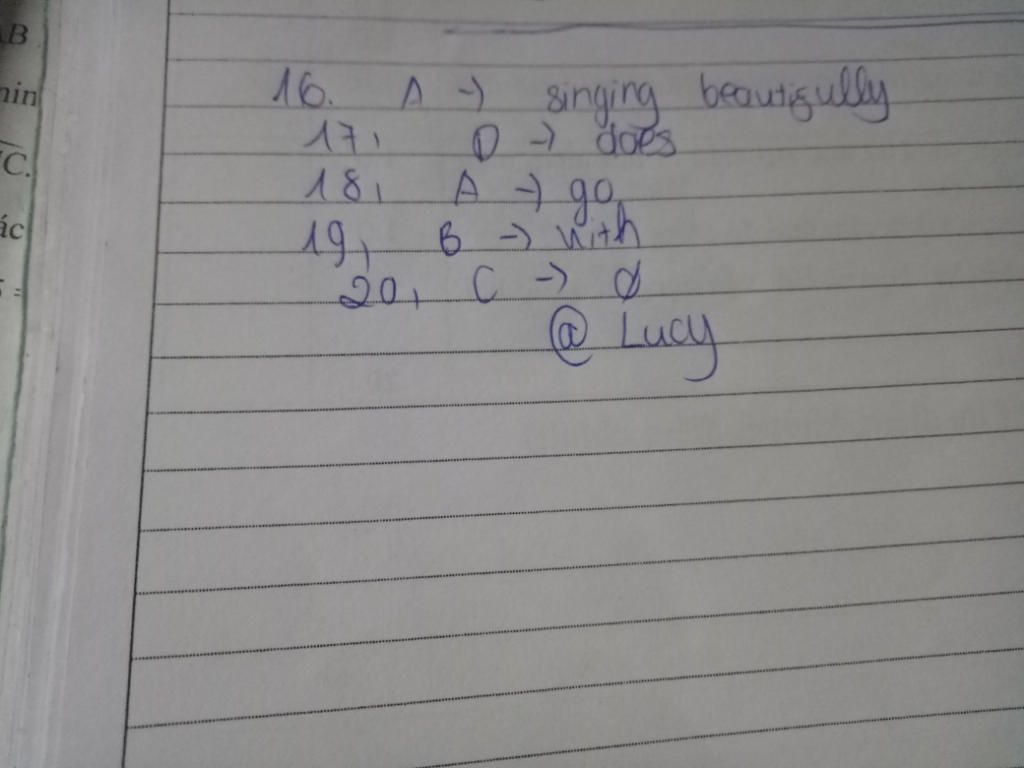 AB
min
C.
ác
16. A → singing beautifully
17, D → does
18, A → go
19, B → with
20, C → Ø
@ Lucy